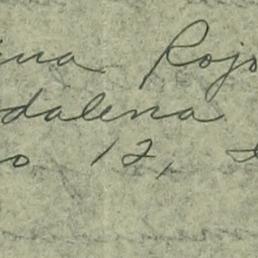 ina Rojo
dalena
o 12,